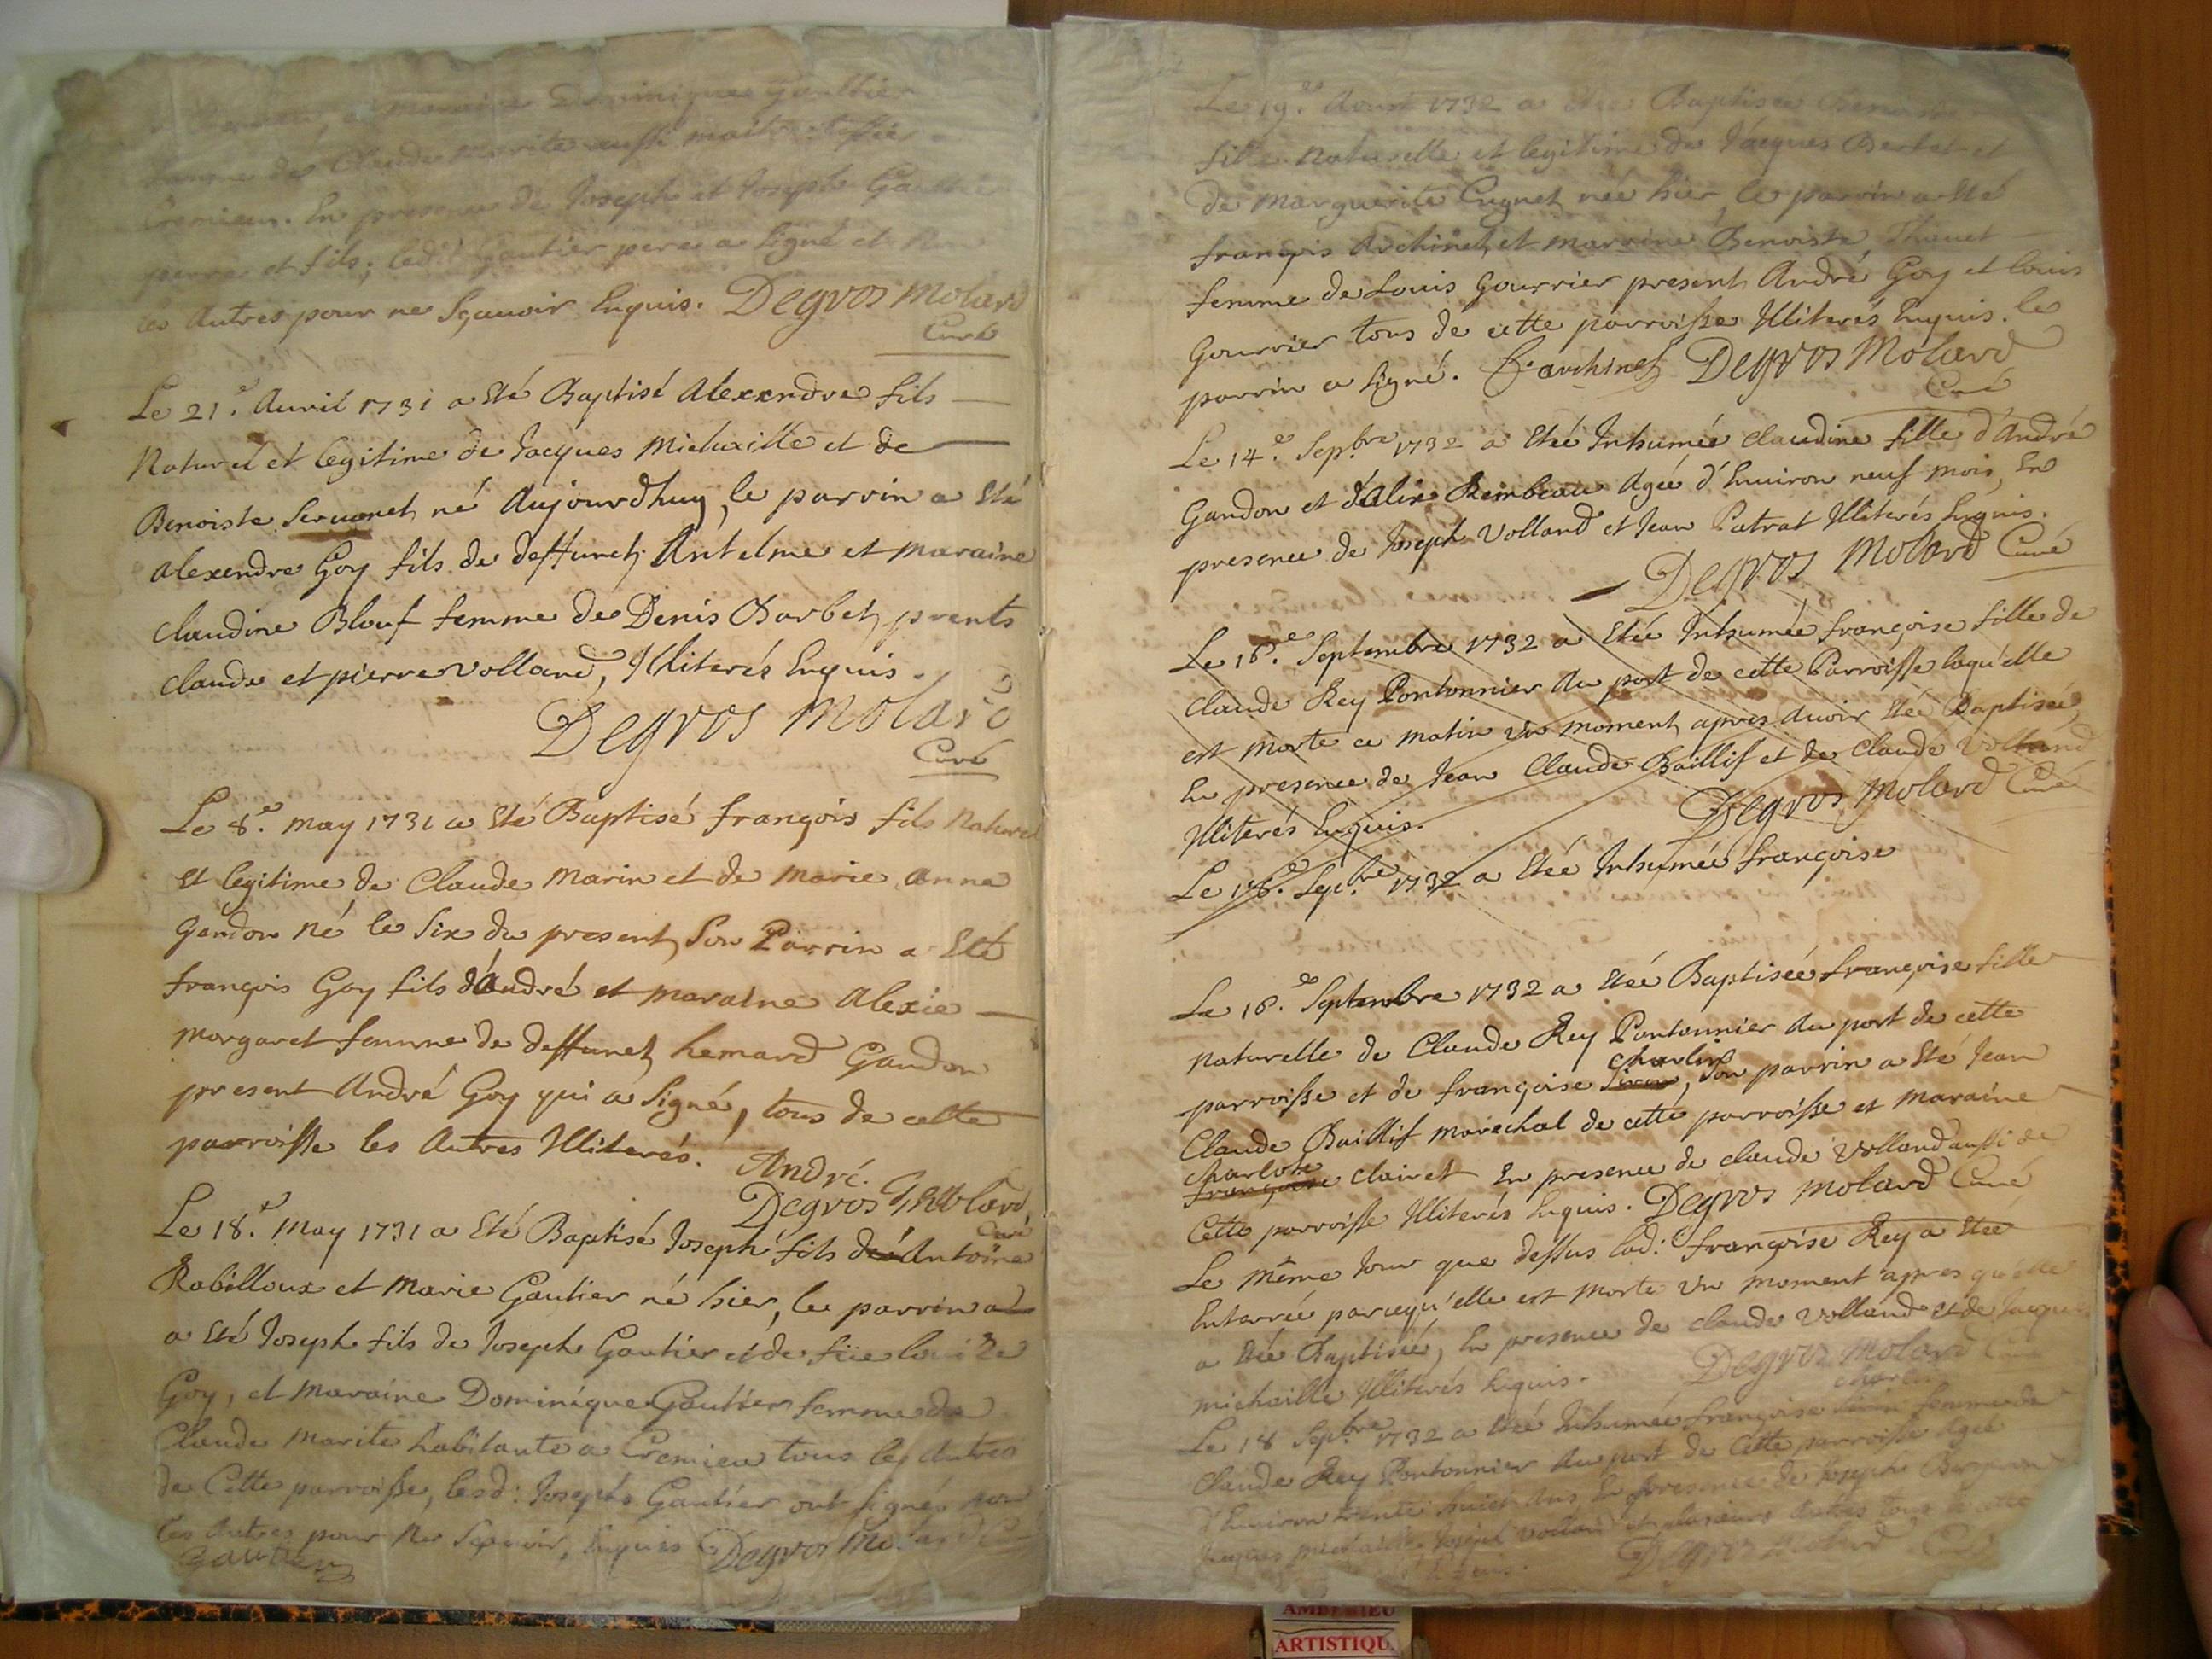 et maraine Dominique Gaultier
femme de Claude Marite aussi maitre
Cremieu. En presence de Joseph et Joseph Gautier
perre et fils; led.t Gautier pere a signé et non
les Autres pour ne Sçauoir Enquis. Degros Molard
Curé
Le 21.e Auril 1731 a Eté Baptisé Alexendre fils
Naturel et legitime de Jacques Michaille et de
Benoiste Seruonet né Aujourdhuy, le parrin a Eté
alexendre Goy fils de deffunct Antelme et maraine
claudine Blouf femme de Denis Barbet, pruts
claude et pierre volland, Illiterés Enquis.
Degros Molard
Curé
Le 8.e may 1731 a Eté Baptisé françois fils Naturel
Et legitime de Claude Marin et de Marie Anne
Gandon né le Six du present, Son Parrin a Eté
françois Goy fils d'André et maraine Alexie
Morgaret femme de deffunct hemard Gandon
present André Goy qui a Signé, tous de cette
parroisse les Autres Illiterés.
André Goy
Degros Molard
Curé
Le 18.e May 1731 a Eté Baptisé Joseph fils de Antoine
Rabilloux et Marie Gautier né hier, le parrin a
a Eté Joseph fils de Joseph Gautier et de füe louise
Goy, et Maraine Dominique Gautier femme de
Claude Marite habitante a Cremieu tous les Autres
de Cette parroisse, lesd: Josephs Gautier ont signé, non
les Autres pour Ne Sçauoir, Enquis Degros Molard Curé
Gautier
Le 19.e Aoust 1732 a Etée Baptisée Benoiste
fille Naturelle et legitime de Jacques Berbet et
de Marguerite Cugnet née hier, le parrin a Eté
françois Archinet, et marraine Benoiste Thenet
femme de Louis Gourrier present André Goy et louis
Gourrier tous de cette parroisse Illiterés Enquis. le
parrin a signé. f. archinet Degros Molard
Curé
Le 14.e Sep.bre 1732 a Etée Inhumée claudine fille d'André
Gandon et d'alix Rimbeau Agée d'Enuiron neuf mois, En
presence de Joseph Volland et Jean Patrat Illiterés Enquis.
Degros Molard Curé
Le 16.e Septembre 1732 a Etée Inhumée françoise fille de
Claude Rey Pontonnier du port de cette Parroisse laqu'elle
est Morte ce matin un moment apres Auoir Eté Baptisée,
En presence de Jean Claude Baillif et de Claude Volland
Illiterés Enquis. Degros Molard Curé
Le 16.e Sep.bre 1732 a Etée Inhumée françoise
Le 16.e Septembre 1732 a Etée Baptisée françoise fille
naturelle de Claude Rey Pontonnier Au port de cette
charlin
parroisse et de françoise, Son parrin a Eté Jean
Claude Baillif marechal de cette parroisse et maraine
charlote
françoise clairet En presence de claude Volland aussi de
Cette parroisse Illiterés Enquis. Degros Molard Curé
Le Même Jour que dessus lad: françoise Rey a Etée
Enterrée parcequ'elle est Morte Un Moment apres qu'elle
a Etée Baptisée, En presence de claude Volland et de Jacques
michaille Illiterés Enquis. Degros Molard Curé
charlin
Le 18 Sep.bre 1732 a Etée Inhumée françoise femme de
Claude Rey Pontonnier Au port de Cette parroisse Agée
d'Enuiron trente huict Ans, En presence de Joseph
Jacques michaille Joseph Volland et plusieurs Autres tous de cette
Degros Molard
AMBERIEU
ARTISTIQU